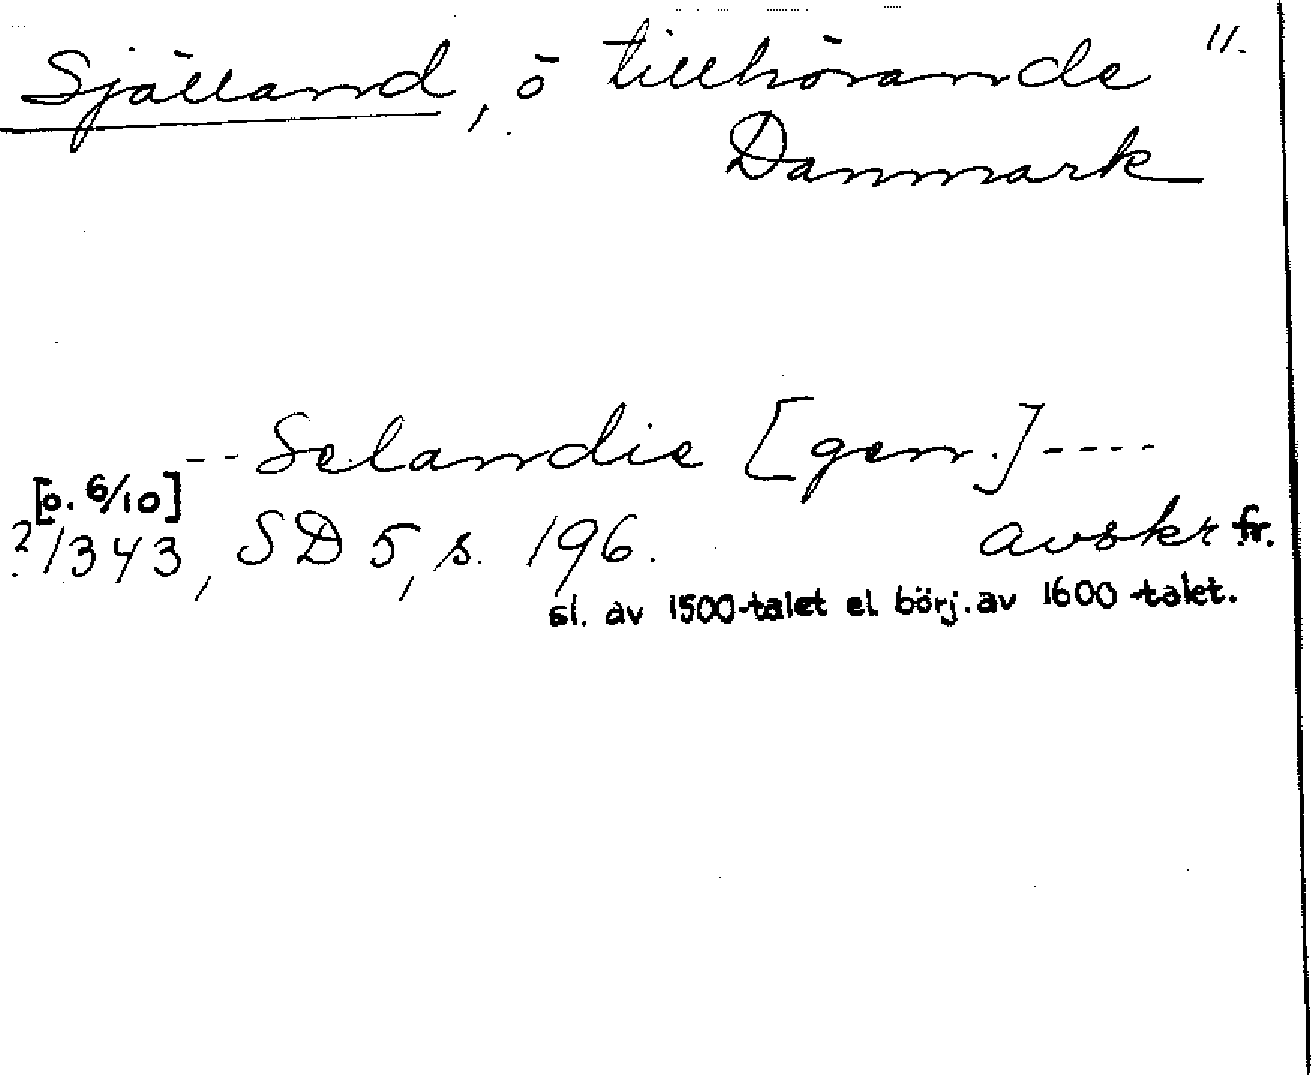 Själland, ö tillhörande 11.
Danmark
-- Selandie [gen.] ----
[o. 6/10]
? 1343, SD 5, s. 196. avskr fr.
sl. av 1500-talet el börj. av 1600-talet.